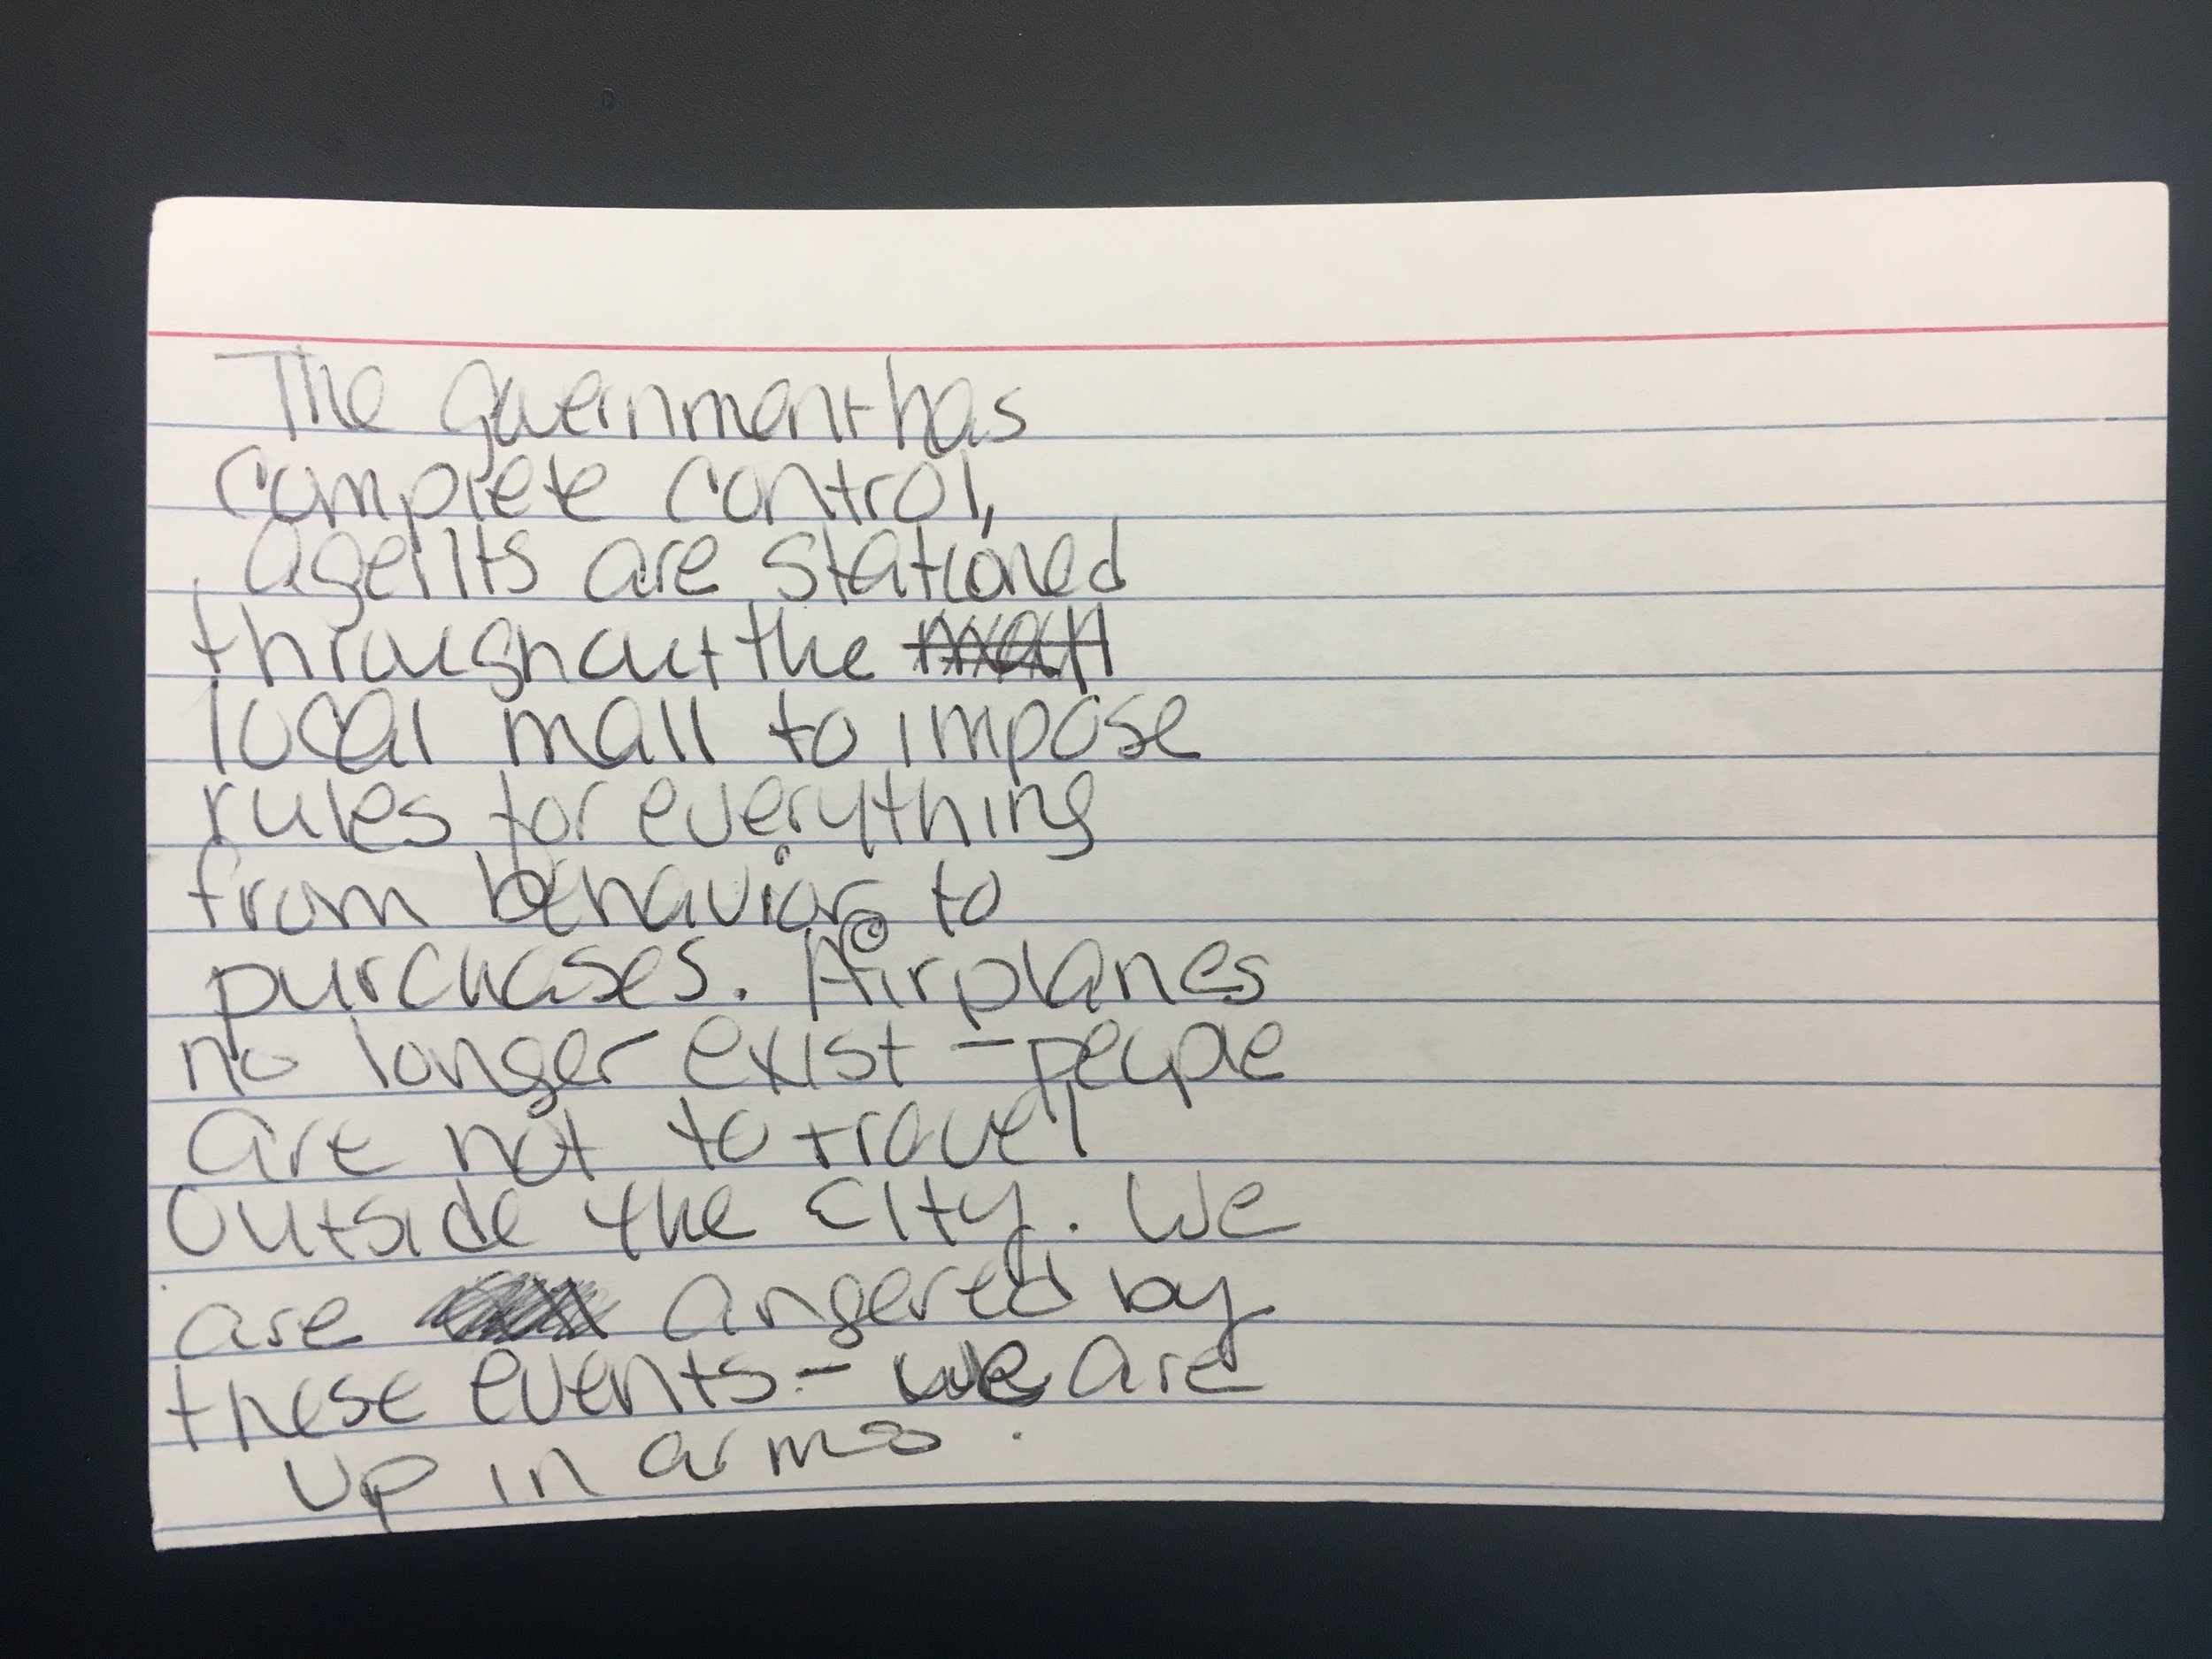 The government has
complete control,
agents are stationed
throughout the mall
local mall to impose
rules for everything
from behavior to
purchases. Airplanes
no longer exist - people
are not to travel
outside the city. We
are angered by
these events - we are
up in arms.